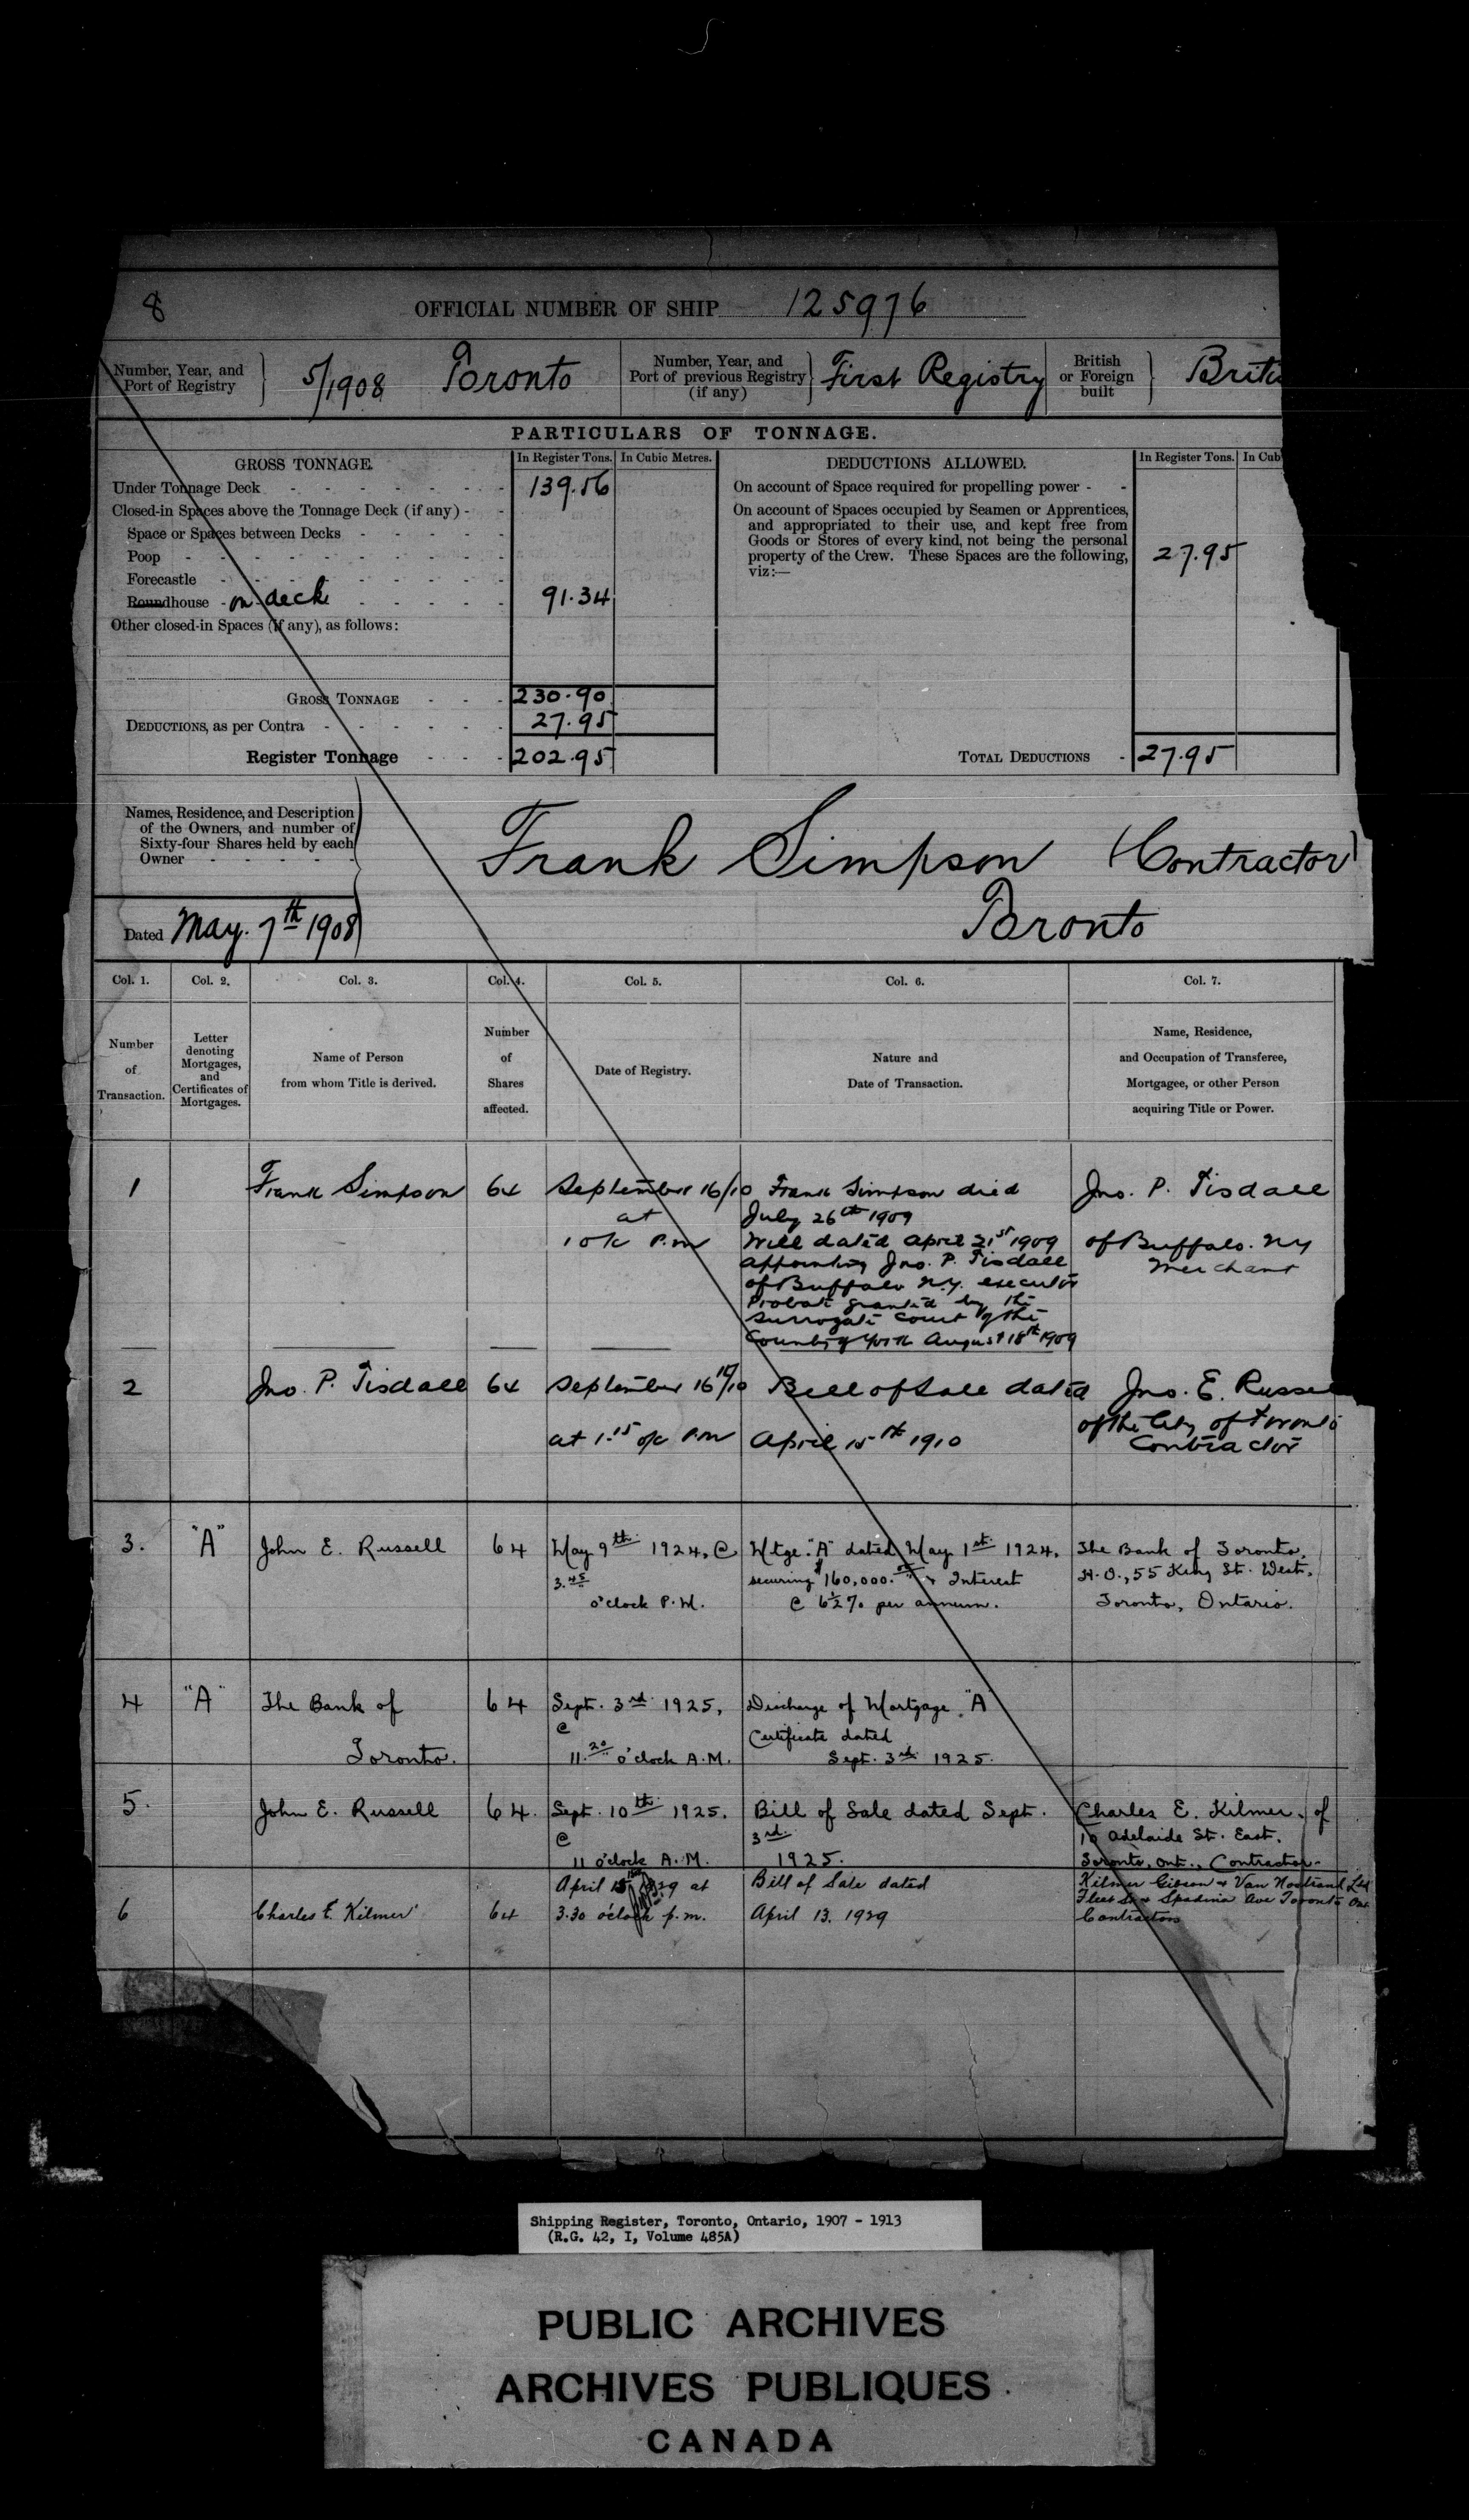 8
OFFICIAL NUMBER OF SHIP 125976
Number, Year, and Port of Registry 5/1908 Toronto Number, Year, and Port of previous Registry (if any) First Registry British or Foreign built Briti
PARTICULARS OF TONNAGE.
GROSS TONNAGE. In Register Tons. In Cubic Metres. DEDUCTIONS ALLOWED. In Register Tons. In Cub
Under Tonnage Deck 139.56 On account of Space required for propelling power
Closed-in Spaces above the Tonnage Deck (if any) On account of Spaces occupied by Seamen or Apprentices,
Space or Spaces between Decks and appropriated to their use, and kept free from
Goods or Stores of every kind, not being the personal
Poop property of the Crew. These Spaces are the following, 27.95
viz:—
Forecastle
Roundhouse on deck 91.34
Other closed-in Spaces (if any), as follows:
GROSS TONNAGE 230.90
DEDUCTIONS, as per Contra 27.95
Register Tonnage 202.95 TOTAL DEDUCTIONS 27.95
Names, Residence, and Description
of the Owners, and number of
Sixty-four Shares held by each
Owner
Frank Simpson (Contractor)
Toronto
Dated May. 7th 1908
Col. 1. Col. 2. Col. 3. Col. 4. Col. 5. Col. 6. Col. 7.
Number of Transaction.
Letter denoting Mortgages, and Certificates of Mortgages.
Name of Person from whom Title is derived.
Number of Shares affected.
Date of Registry.
Nature and Date of Transaction.
Name, Residence, and Occupation of Transferee, Mortgagee, or other Person acquiring Title or Power.
1 Frank Simpson 64 September 16/10 Frank Simpson died Jno. P. Tisdall
at July 26th 1909
1 o/c P.m Will dated April 21st 1909 of Buffalo. NY
appointing Jno. P. Tisdall Merchant
of Buffalo N.Y. executor
Probate granted by the
Surrogate Court of the
County of York August 18th 1909
2 Jno. P. Tisdall 64 September 16th/10 Bill of Sale dated Jno. E. Russel
of the City of Toronto
at 1.15 o/c P.m April 15th 1910 Contractor
3. "A" John E. Russell 64 May 9th 1924, @ Mtge. "A" dated May 1st 1924, The Bank of Toronto,
3.45 securing $160,000.00 & Interest H.O., 55 King St. West,
o'clock P.M. @ 6½% per annum. Toronto, Ontario.
4 "A" The Bank of 64 Sept. 3rd 1925, Discharge of Mortgage "A"
@ Certificate dated
Toronto. 11.20 o'clock A.M. Sept. 3rd 1925.
5. John E. Russell 64. Sept. 10th 1925. Bill of Sale dated Sept. Charles E. Kilmer, of
@ 3rd 10 Adelaide St. East,
11 o'clock A.M. 1925. Toronto, Ont., Contractor.
April 1929 at Bill of Sale dated Kilmer Gibson & Van Nostrand Ltd
Fleet St & Spadina Ave Toronto Ont
6 Charles E. Kilmer 64 3.30 o'clock p.m. April 13. 1929 Contractors
Shipping Register, Toronto, Ontario, 1907 - 1913
(R.G. 42, I, Volume 485A)
PUBLIC ARCHIVES
ARCHIVES PUBLIQUES
CANADA